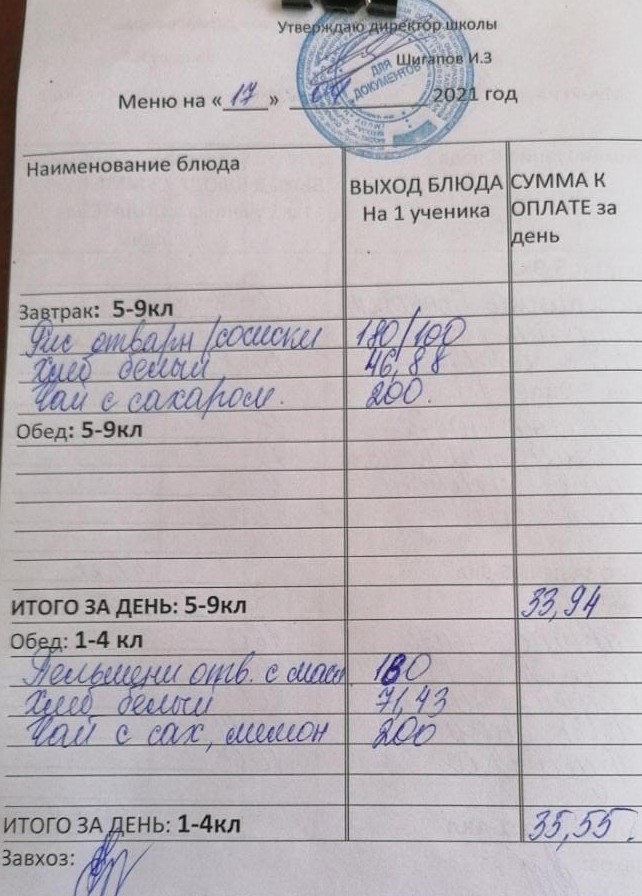 Утверждаю директор школы
Шигапов И.З
ДЛЯ
ДОКУМЕНТОВ
Меню на « 17 » 2021 год
Наименование блюда ВЫХОД БЛЮДА СУММА К
На 1 ученика ОПЛАТЕ за
день
Завтрак: 5-9кл
Рис отварн/сосиски 180/100
Хлеб белый 46,88
Чай с сахаром. 200.
Обед: 5-9кл
ИТОГО ЗА ДЕНЬ: 5-9кл 33,94
Обед: 1-4 кл
Пельмени отв. с масл 180
Хлеб белый 71,43
Чай с сах, лимон 200
ИТОГО ЗА ДЕНЬ: 1-4кл 35,55.
Завхоз: